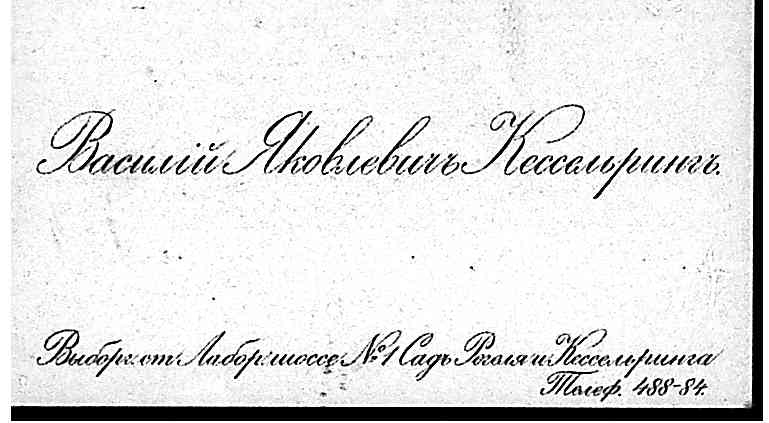 Василій Яковлевичъ Кессельрингъ.
Выборг. ст. Лабор. шоссе, № 1 Садъ Регеля и Кессельринга
Телеф. 488-84.